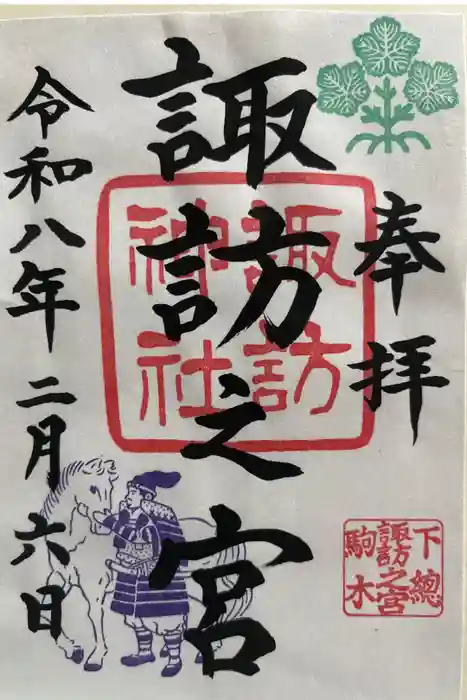 奉拝
諏訪之宮
令和八年二月六日
諏訪
神社
下總
諏訪之宮
駒木